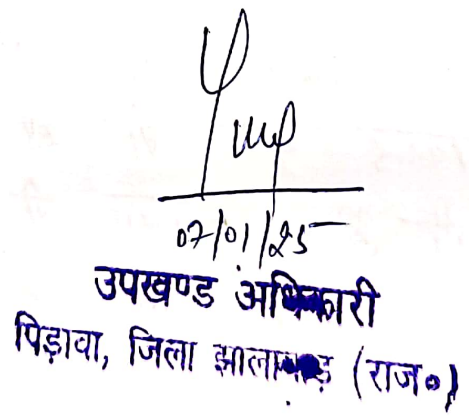 07/01/25
उपखण्ड अधिकारी
पिड़ावा, जिला झालावाड़ (राज०)